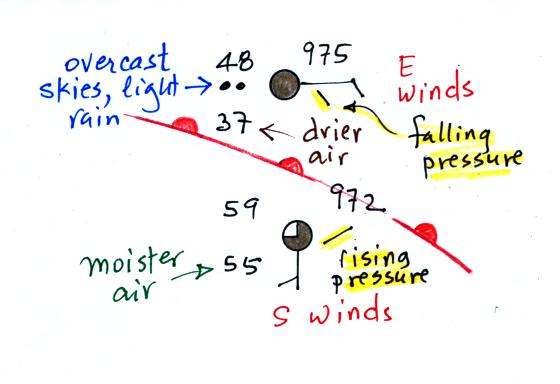 overcast
skies, light
rain
48
975
37
E
winds
drier
air
falling
pressure
59
972
55
moister
air
rising
pressure
S winds